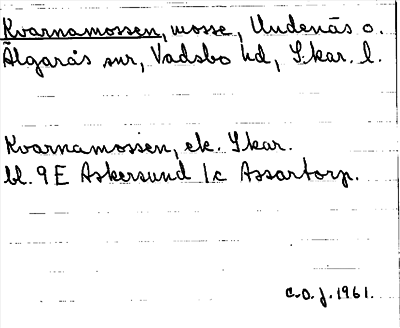 Kvarnamossen, mosse, Undenäs o.
Älgarås snr, Vadsbo hd, Skar. l.
Kvarnamossen, ek. Skar.
bl. 9E Askersund 1c Assartorp.
C.O.J. 1961.